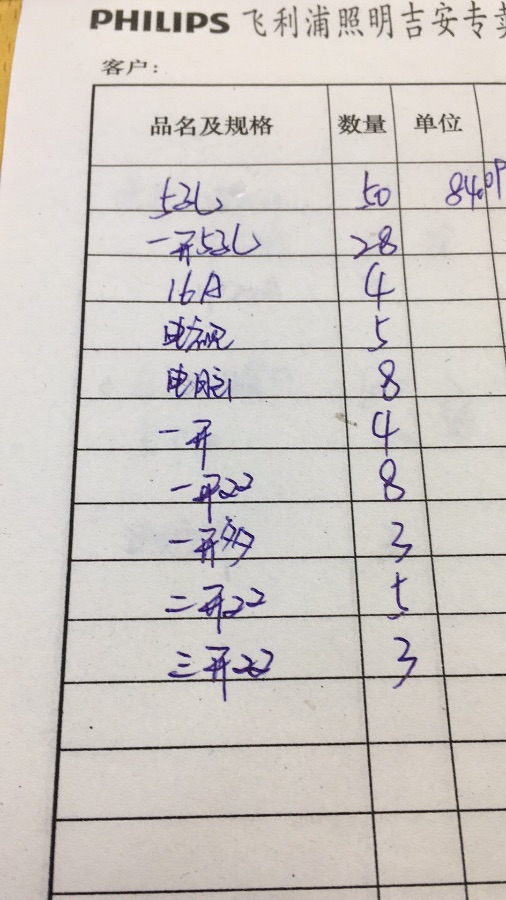 PHILIPS 飞利浦照明吉安专卖
客户：
品名及规格 数量 单位
53L 50 840P
一开53L 28
16A 4
电视 5
电脑 8
一开 4
一开22 8
一开多 3
二开22 5
三开22 3